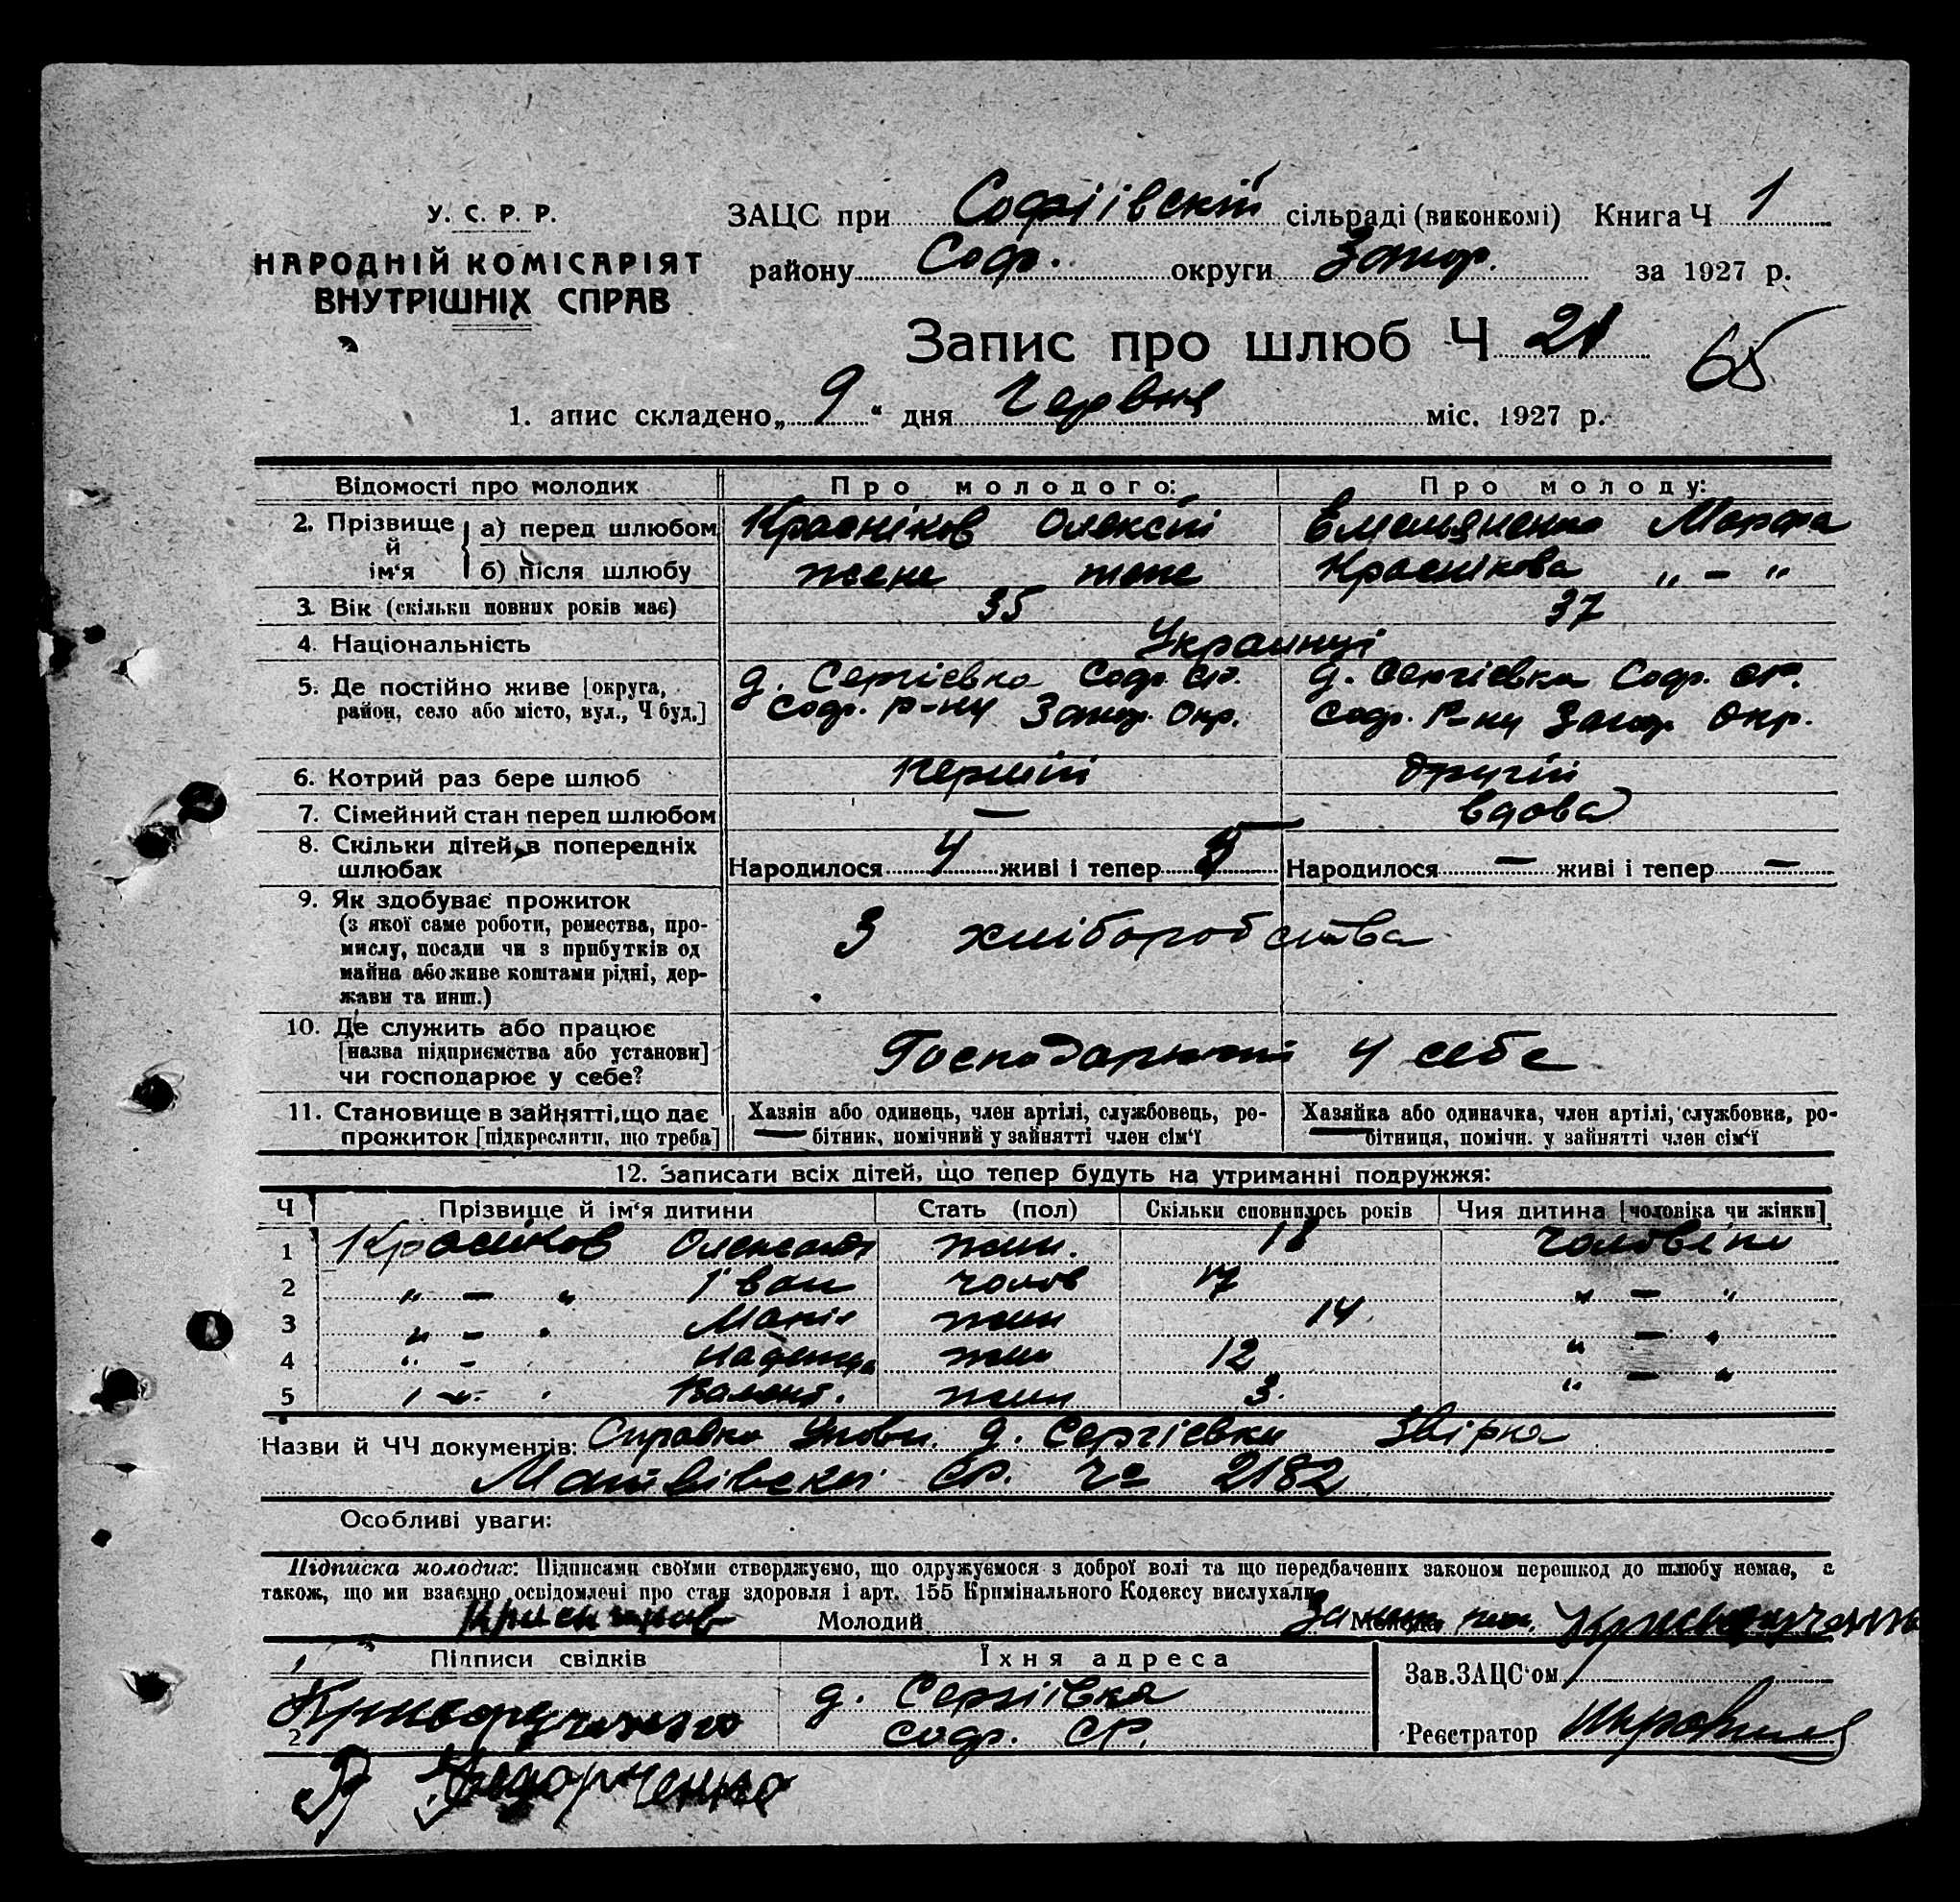 У. С. Р. Р.
НАРОДНІЙ КОМІСАРІЯТ
ВНУТРІШНІХ СПРАВ
ЗАЦС при Софіївскій сільраді (виконкомі) Книга Ч 1
району Соф. округи Запор. за 1927 р.
Запис про шлюб Ч 21
65
1. апис складено „ 9 “ дня Червня міс. 1927 р.
Відомості про молодих Про молодого: Про молоду:
2. Прізвище й ім‘я
а) перед шлюбом Красніков Олексій Емельяненко Марфа
б) після шлюбу теже теже Краснікова „ – „
3. Вік (скільки повних років має) 35 37
4. Національність Украинці
5. Де постійно живе [округа, район, село або місто, вул., Ч буд.]
д. Сергієвка Соф. СР. Соф. Р-ну Запор. Окр.
д. Сергієвка Соф. СР. Соф. Р-ну Запор. Окр.
6. Котрий раз бере шлюб Перший Другій
7. Сімейний стан перед шлюбом — вдова
8. Скільки дітей в попередніх шлюбах
Народилося 4 живі і тепер 5 Народилося — живі і тепер —
9. Як здобуває прожиток
(з якої саме роботи, ремества, про-
мислу, посади чи з прибутків од
майна або живе коштами рідні, дер-
жави та инш.)
З хліборобства
10. Де служить або працює
[назва підприємства або установи]
чи господарює у себе?
Господарюют у себе
11. Становище в зайнятті, що дає
прожиток [підкреслити, що треба]
Хазяїн або одинець, член артілі, службовець, ро-
бітник, помічний у зайнятті член сім‘ї
Хазяйка або одиначка, член артілі, службовка, ро-
бітниця, помічн. у зайнятті член сім‘ї
12. Записати всіх дітей, що тепер будуть на утриманні подружжя:
Ч Прізвище й ім‘я дитини Стать (пол) Скільки сповнилось років Чия дитина [чоловіка чи жінки]
1 Красніков Олександ жин. 18 Чоловіка
2 „ – „ Іван чолов 17 „ – „
3 „ – „ Марія жин 14 „ – „
4 „ – Надежда жин 12 „ – „
5 Валент. жин 3. „
Назви й ЧЧ документів: Справка Уповн. д. Сергієвки Звірка
Матвіівскої СР. Чо 2182
Особливі уваги:
Підписка молодих: Підписами своїми стверджуємо, що одружуємося з доброї волі та що передбачених законом перешкод до шлюбу немає, а
також, що ми взаємно освідомлені про стан здоровля і арт. 155 Кримінального Кодексу вислухали
Молодий Молода
Підписи свідків Їхня адреса
1 д. Сергіївка
2 Соф. СР.
Зав. ЗАЦС‘ом
Реєстратор